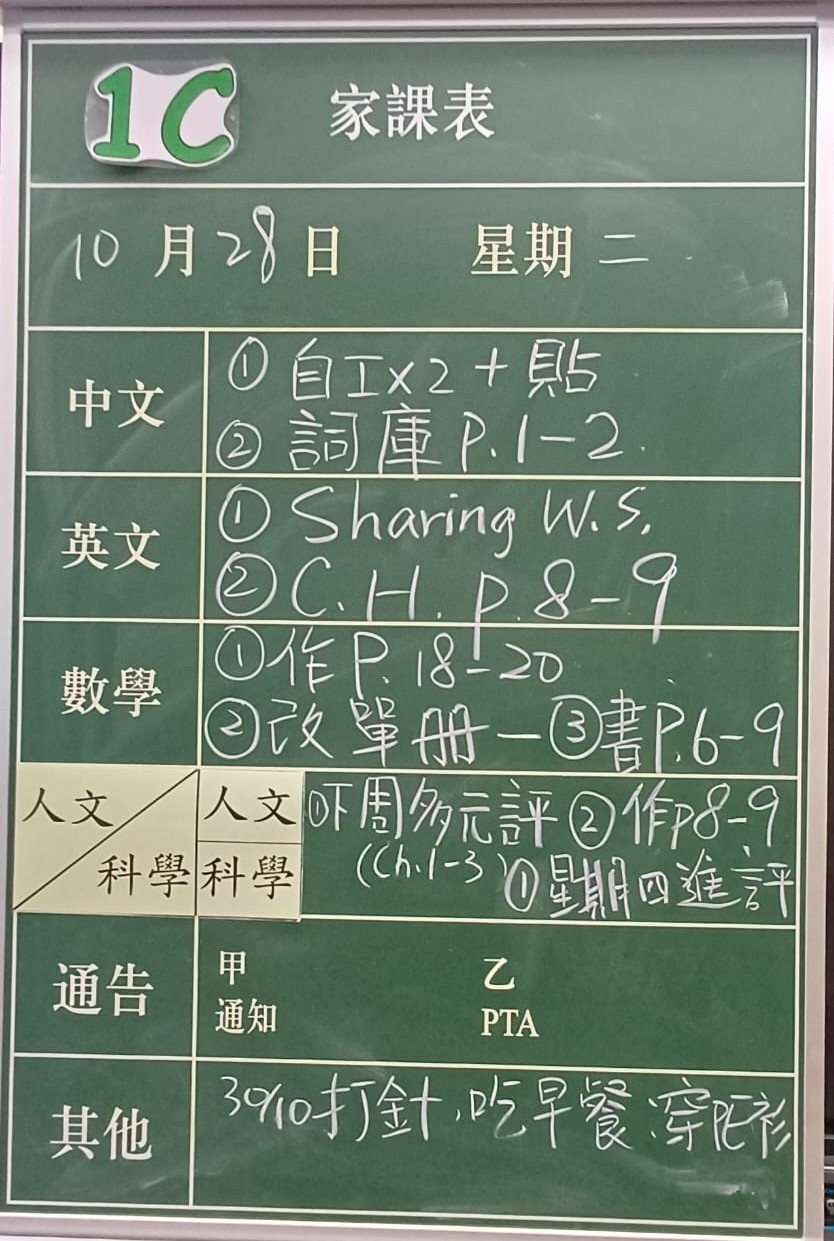 1C 家課表
10月28日 星期二
中文
① 自工×2 + 貼
② 詞庫 P.1-2.
英文
① Sharing W.S.
② C.H. p.8-9
數學
① 作 P.18-20
② 改單册一 ③ 書P.6-9
人文/科學
人文 ① 下周多元評 ② 作p8-9
(Ch.1-3)
科學 ① 星期四進評
通告
甲 乙
通知 PTA
其他
30/10打針,吃早餐,穿PE衫